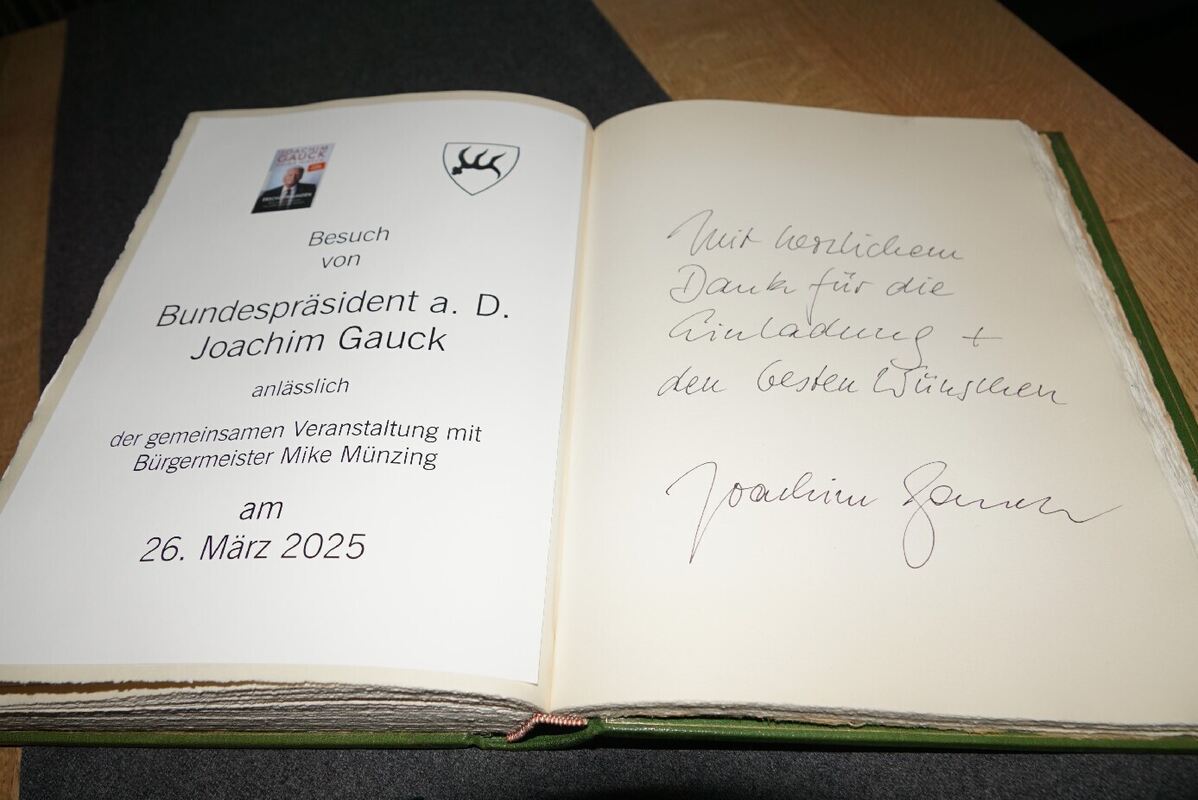 JOACHIM
GAUCK
Besuch
von
Bundespräsident a. D.
Joachim Gauck
anlässlich
der gemeinsamen Veranstaltung mit
Bürgermeister Mike Münzing
am
26. März 2025
Mit herzlichem
Dank für die
Einladung +
den besten Wünschen
Joachim Gauck